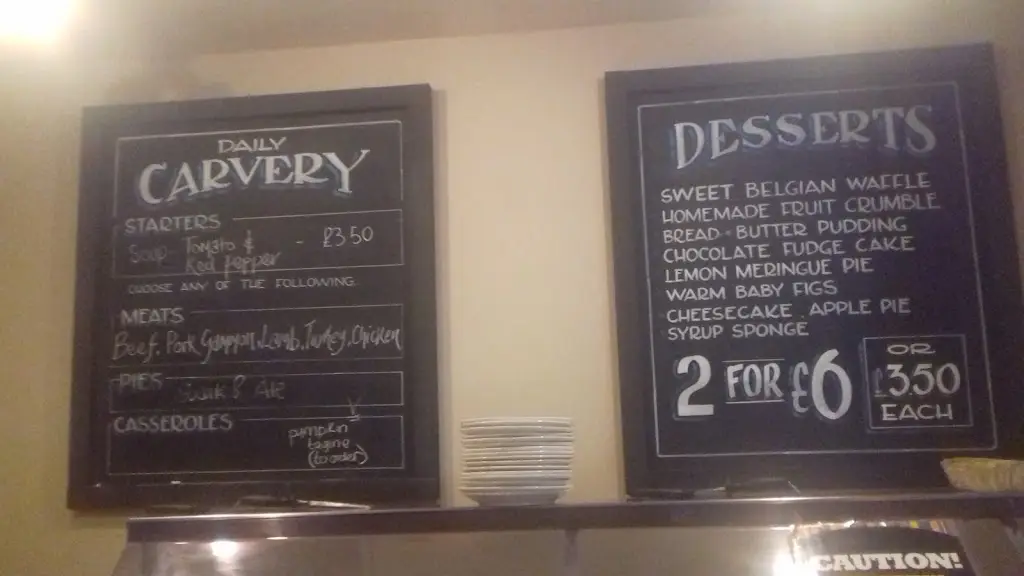 DAILY
CARVERY
STARTERS
Soup Tomato & - £3.50
Red Pepper
CHOOSE ANY OF THE FOLLOWING.
MEATS
Beef, Pork, Gammon, Lamb, Turkey, Chicken
PIES
& Ale
CASSEROLES
V
pumpkin
tagine
(to order)
DESSERTS
SWEET BELGIAN WAFFLE
HOMEMADE FRUIT CRUMBLE
BREAD + BUTTER PUDDING
CHOCOLATE FUDGE CAKE
LEMON MERINGUE PIE
WARM BABY FIGS
CHEESECAKE APPLE PIE
SYRUP SPONGE
2 FOR £6
OR
£3.50
EACH
CAUTION!